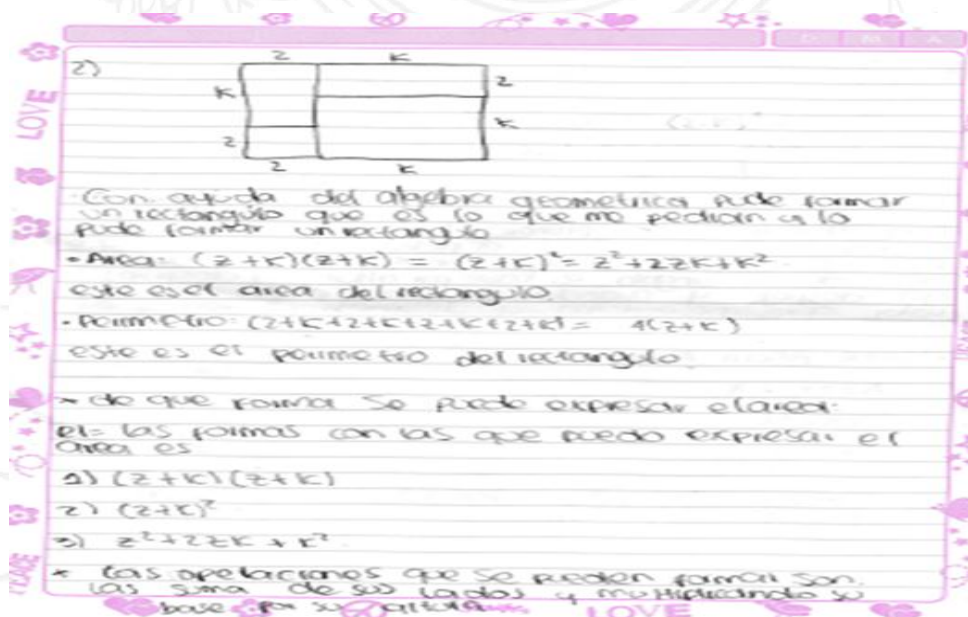 2)
z k
k z
z k
z k
Con ayuda del algebra geometrica pude formar
un rectangulo que es lo que me pedian y lo
pude formar un rectangulo
• Area: (z+k)(z+k) = (z+k)² = z²+2zk+k²
este es el area del rectangulo
• Perimetro: (z+k+z+k+z+k+z+k) = 4(z+k)
este es el perimetro del rectangulo
* de que forma se puede expresar el area:
R= las formas con las que puedo expresar el
area es
1) (z+k)(z+k)
2) (z+k)²
3) z²+2zk+k²
* las operaciones que se pueden formar son.
las suma de sus lados y multiplicando su
base por su altura
LOVE
PEACE
LOVE